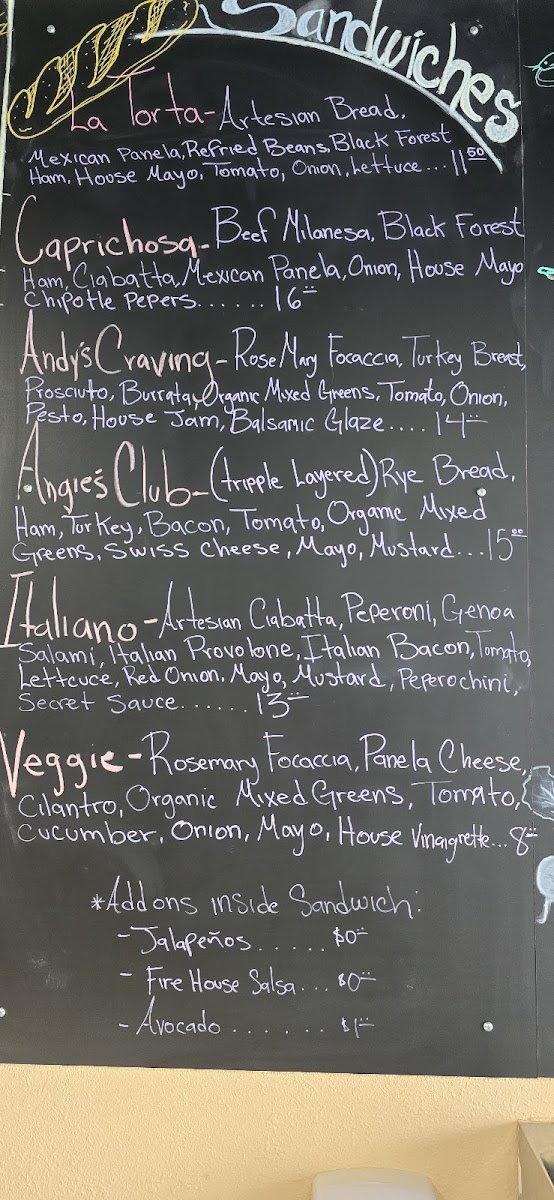 Sandwiches
La Torta - Artesian Bread,
Mexican Panela, Refried Beans, Black Forest
Ham, House Mayo, Tomato, Onion, Lettuce... 11 50
Caprichosa - Beef Milanesa, Black Forest
Ham, Ciabatta, Mexican Panela, Onion, House Mayo
Chipotle Pepers...... 16
Andy's Craving - RoseMary Focaccia, Turkey Breast,
Prosciuto, Burrata, Organic Mixed Greens, Tomato, Onion,
Pesto, House Jam, Balsamic Glaze.... 14
Angie's Club - (tripple Layered) Rye Bread,
Ham, Turkey, Bacon, Tomato, Organic Mixed
Greens, Swiss Cheese, Mayo, Mustard... 15 00
Italiano - Artesian Ciabatta, Peperoni, Genoa
Salami, Italian Provolone, Italian Bacon, Tomato,
Lettcuce, Red Onion. Mayo, Mustard, Peperochini,
Secret Sauce...... 13
Veggie - Rosemary Focaccia, Panela Cheese,
Cilantro, Organic Mixed Greens, Tomato,
Cucumber, Onion, Mayo, House Vinaigrette... 8
*Add ons inside Sandwich:
- Jalapeños..... $0
- Fire House Salsa... $0
- Avocado...... $1